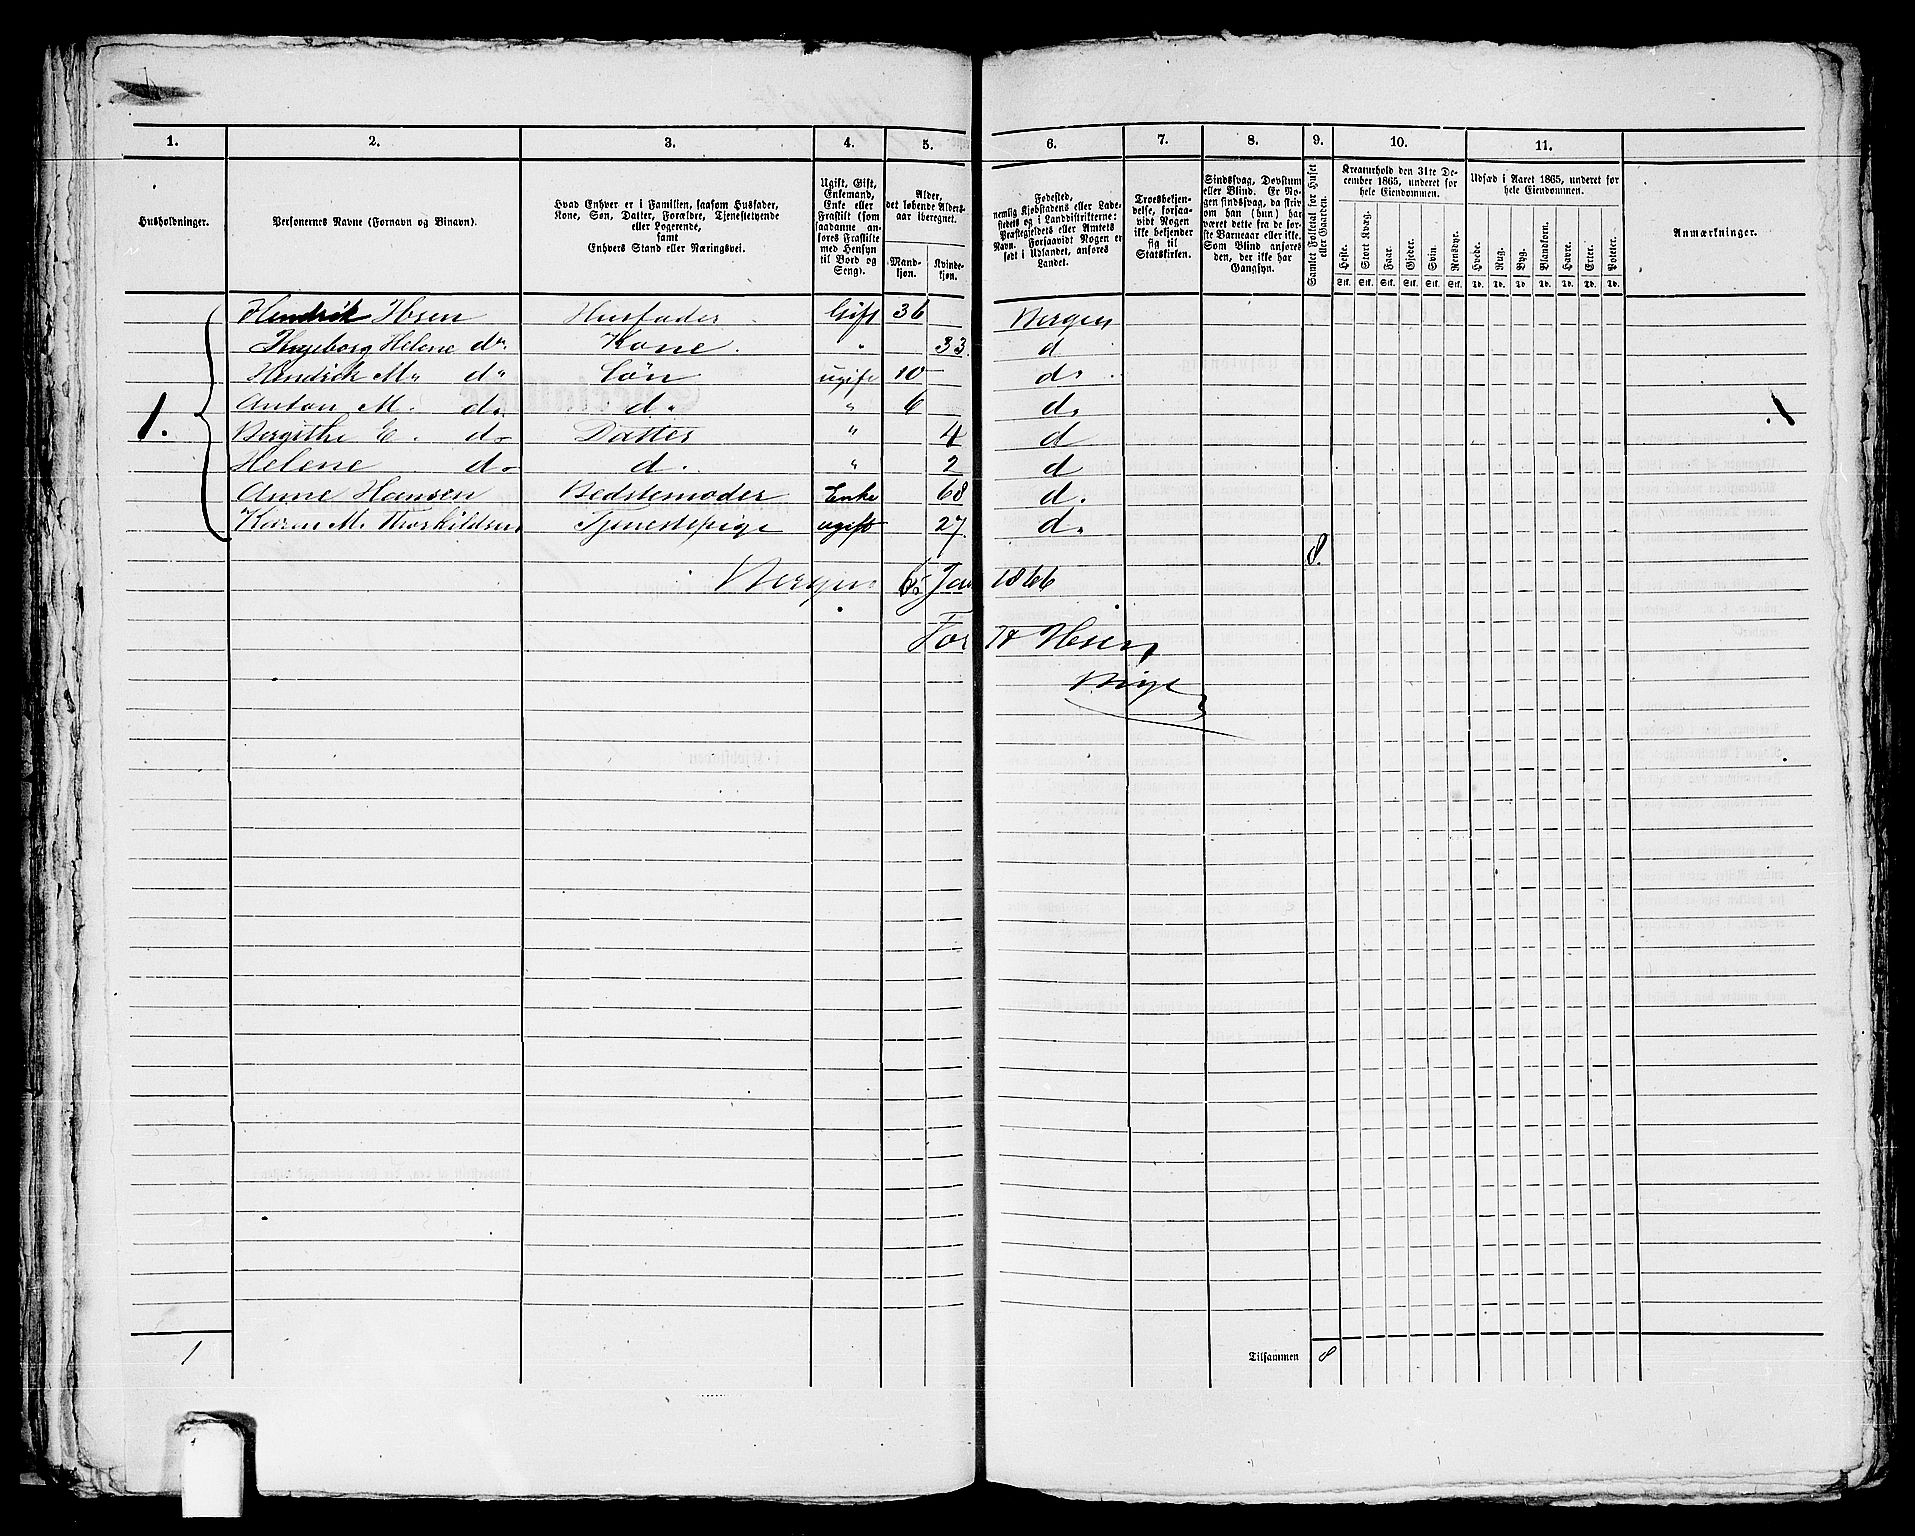 1. 2. 3. 4. 5. 6. 7. 8. 9. 10. 11.
Husholdninger.
Personernes Navne (Fornavn og Binavn).
Hvad Enhver er i Familien, saasom Husfader,
Kone, Søn, Datter, Forældre, Tjenestetyende
eller Logerende,
samt
Enhvers Stand eller Næringsvei.
Ugift, Gift,
Enkemand,
Enke eller
Fraskilt (som
saadanne an-
føres Fraskilte
med Hensyn
til Bord og
Seng).
Alder,
det løbende Alders-
aar iberegnet.
Mand-
kjøn.
Kvinde-
kjøn.
Fødested,
nemlig Kjøbstadens eller Lade-
stedets og i Landdistrikterne:
Præstegjeldets eller Amtets
Navn. Forsaavidt Nogen er
født i Udlandet, anføres
Landet.
Troesbekjen-
delse, forsaa-
vidt Nogen
ikke bekjender
sig til
Statskirken.
Sindssvag, Døvstum
eller Blind. Er No-
gen sindssvag, da skriv
om han (hun) har
været dette fra de før-
ste Barneaar eller ikke.
Som Blind anføres
den, der ikke har
Gangsyn.
Samlet Folketal for Huset
eller Gaarden.
Kreaturhold den 31te De-
cember 1865, underet for
hele Eiendommen.
Heste. Stort Kvæg. Faar. Gjeder. Svin. Rensdyr.
Stk. Stk. Stk. Stk. Stk. Stk.
Udsæd i Aaret 1865, underet for
hele Eiendommen.
Hvede. Rug. Byg. Blandkorn. Havre. Erter. Poteter.
Td. Td. Td. Td. Td. Td. Td.
Anmærkninger.
Hendrik Ibsen Husfader Gift 36 Bergen
Ingeborg Helene do. Kone. " 33. d
Hendrik M" d" Søn ugift 10 d.
Anton M. d. d. " 6 d.
1. Bergithe E. do Datter " 4 d 1
Helene do d. " 2 d
Anne Hansen Bedstemoder Enke 68 d.
Karen M. Thorkildsen Tjenestepige ugift 27. d.
8.
Bergen Jan 1866
For H Ibsen
1
Tilsammen 8